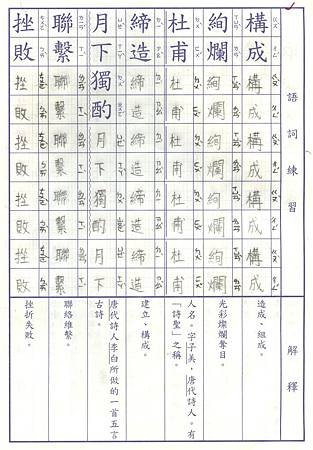 語詞練習
解釋
構成
構成構成構成構成
造成、組成。
絢爛
絢爛絢爛絢爛絢爛
光彩燦爛奪目。
杜甫
杜甫杜甫杜甫杜甫
人名。字子美，唐代詩人。有
「詩聖」之稱。
締造
締造締造締造締造
建立、構成。
月下獨酌
月下獨酌月下
唐代詩人李白所做的一首五言
古詩。
聯繫
聯繫聯繫聯繫聯繫
聯絡維繫。
挫敗
挫敗挫敗挫敗挫敗
挫折失敗。